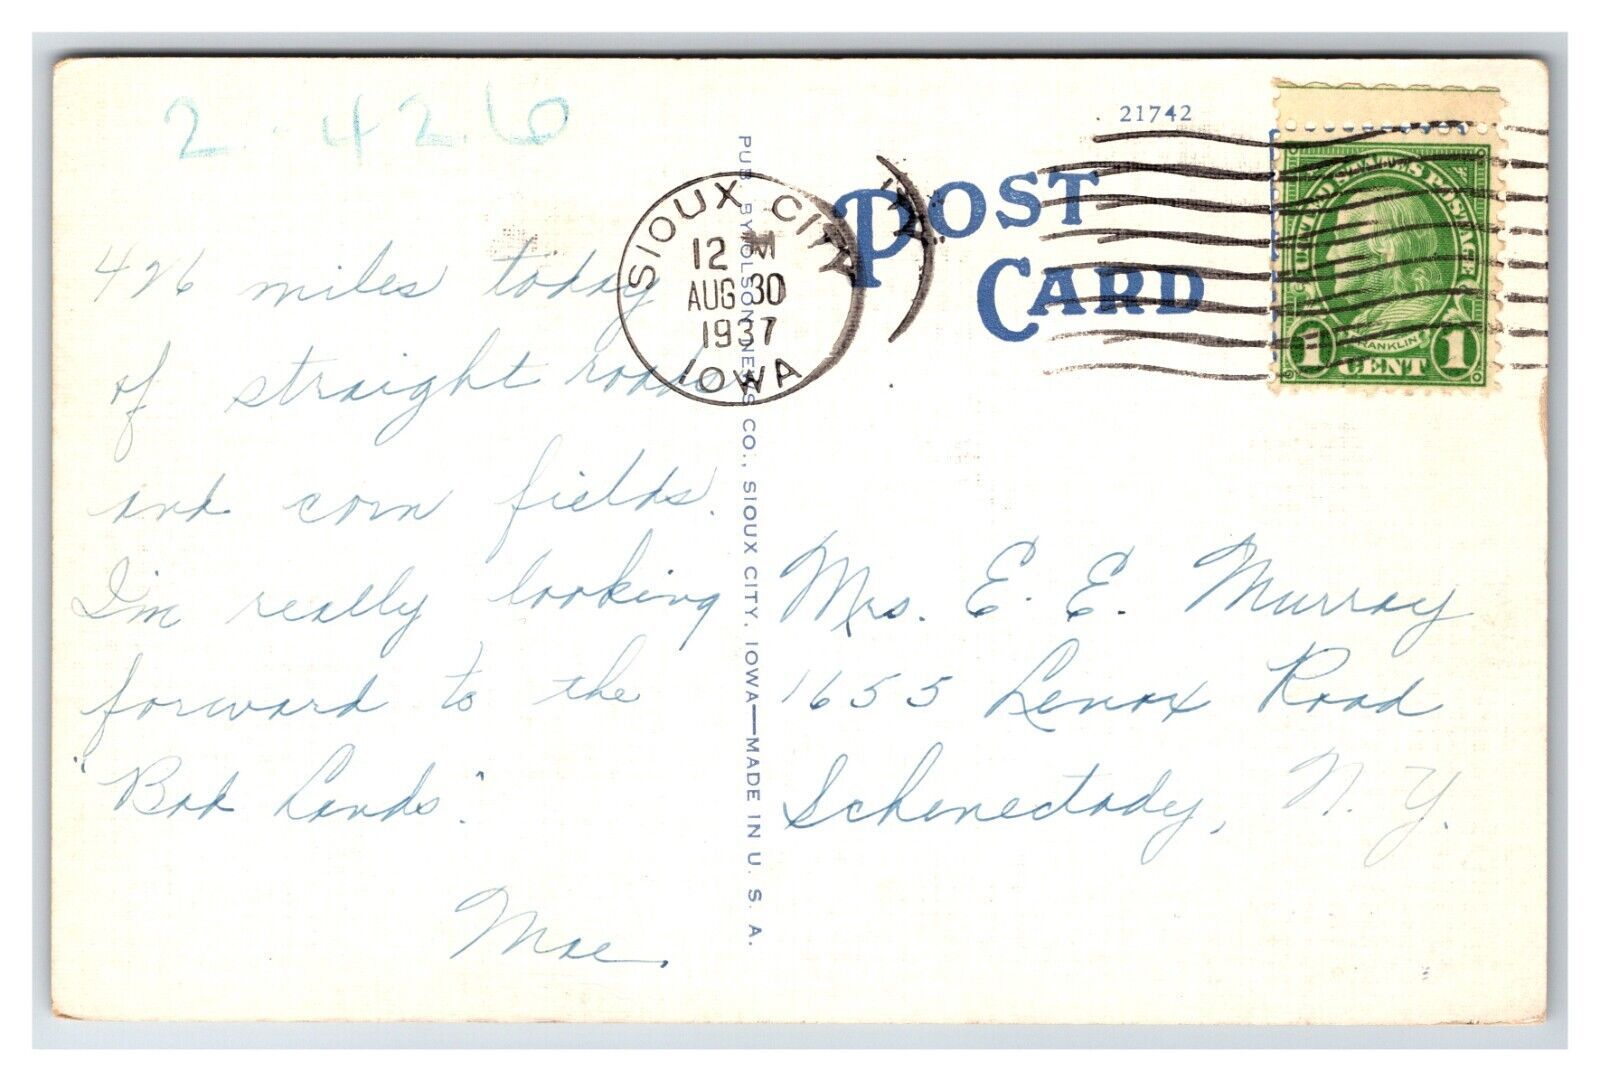 2-426
21742
POST
CARD
SIOUX CITY
12 M
AUG 30
1937
IOWA
UNITED STATES POSTAGE
FRANKLIN
1 CENT 1
426 miles today
of straight roads
and corn fields.
I'm really looking
forward to the
"Bad Lands".
Mae.
PUB. BY OLSON NEWS CO., SIOUX CITY, IOWA—MADE IN U. S. A.
Mrs. E. E. Murray
1655 Lenox Road
Schenectady, N. Y.